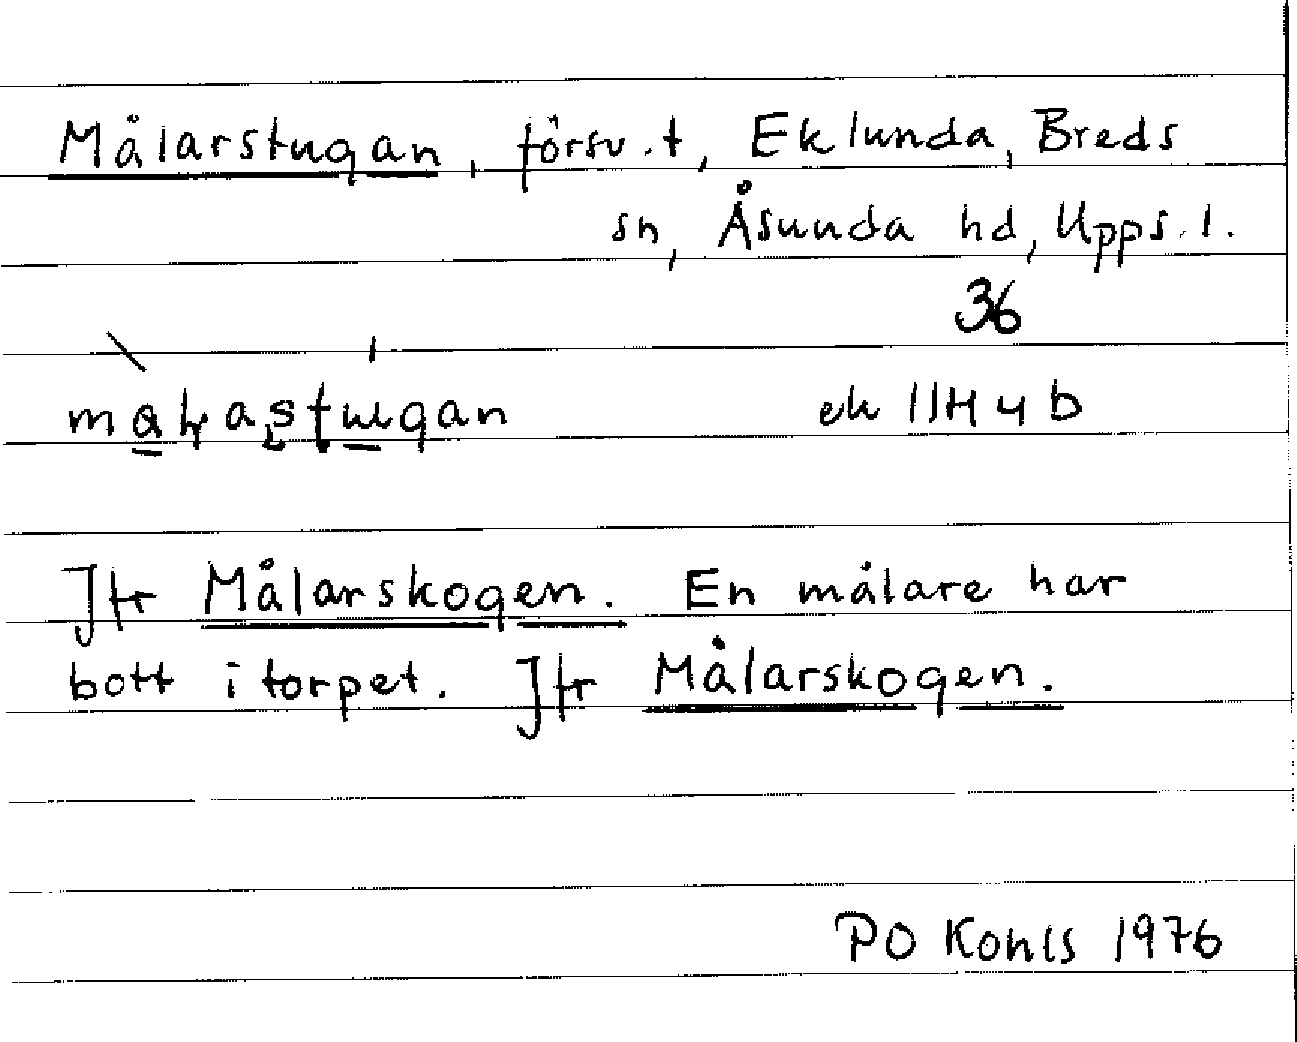 Målarstugan, försv. t, Eklunda, Breds
sn, Åsunda hd, Upps. l.
36
ek 11H 4 b
Jfr Målarskogen. En målare har
bott i torpet. Jfr Målarskogen.
PO Kohls 1976